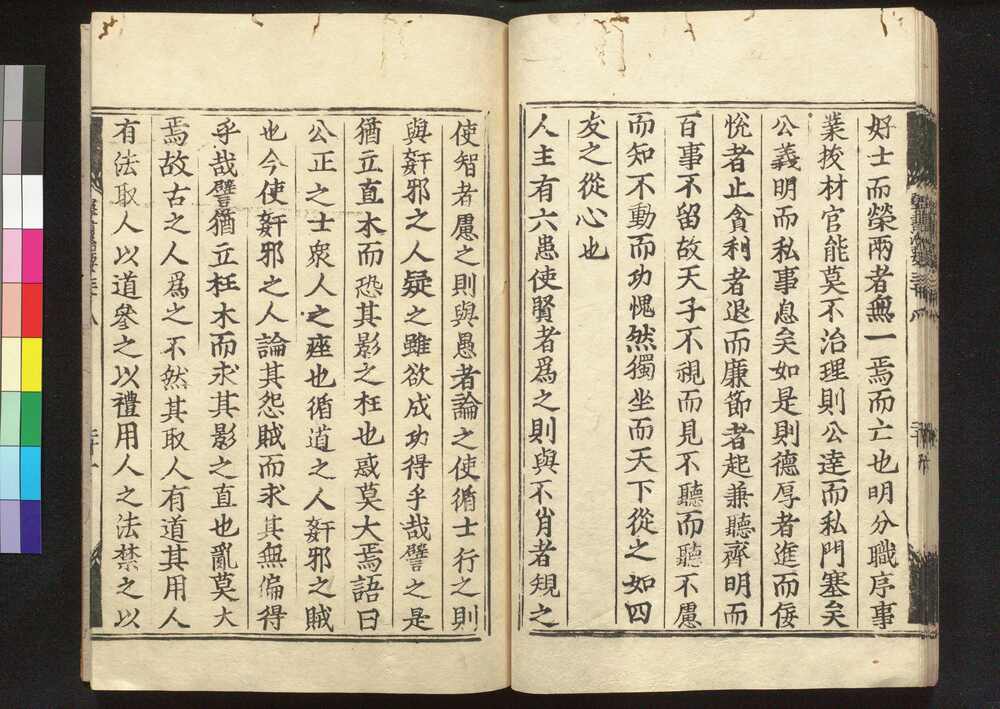 好士而榮兩者無一焉而亡也明分職序事
業拔材官能莫不治理則公達而私門塞矣
公義明而私事息矣如是則德厚者進而佞
悅者止貪利者退而廉節者起兼聽齊明而
百事不留故天子不視而見不聽而聽不慮
而知不動而功愧然獨坐而天下從之如四
支之從心也
人主有六患使賢者為之則與不肖者規之
使智者慮之則與愚者論之使循士行之則
與姧邪之人疑之雖欲成功得乎哉譬之是
猶立直木而恐其影之枉也惑莫大焉語曰
公正之士眾人之痤也循道之人姧邪之賊
也今使姧邪之人論其怨賊而求其無偏得
乎哉譬猶立枉木而求其影之直也亂莫大
焉故古之人為之不然其取人有道其用人
有法取人以道參之以禮用人之法禁之以